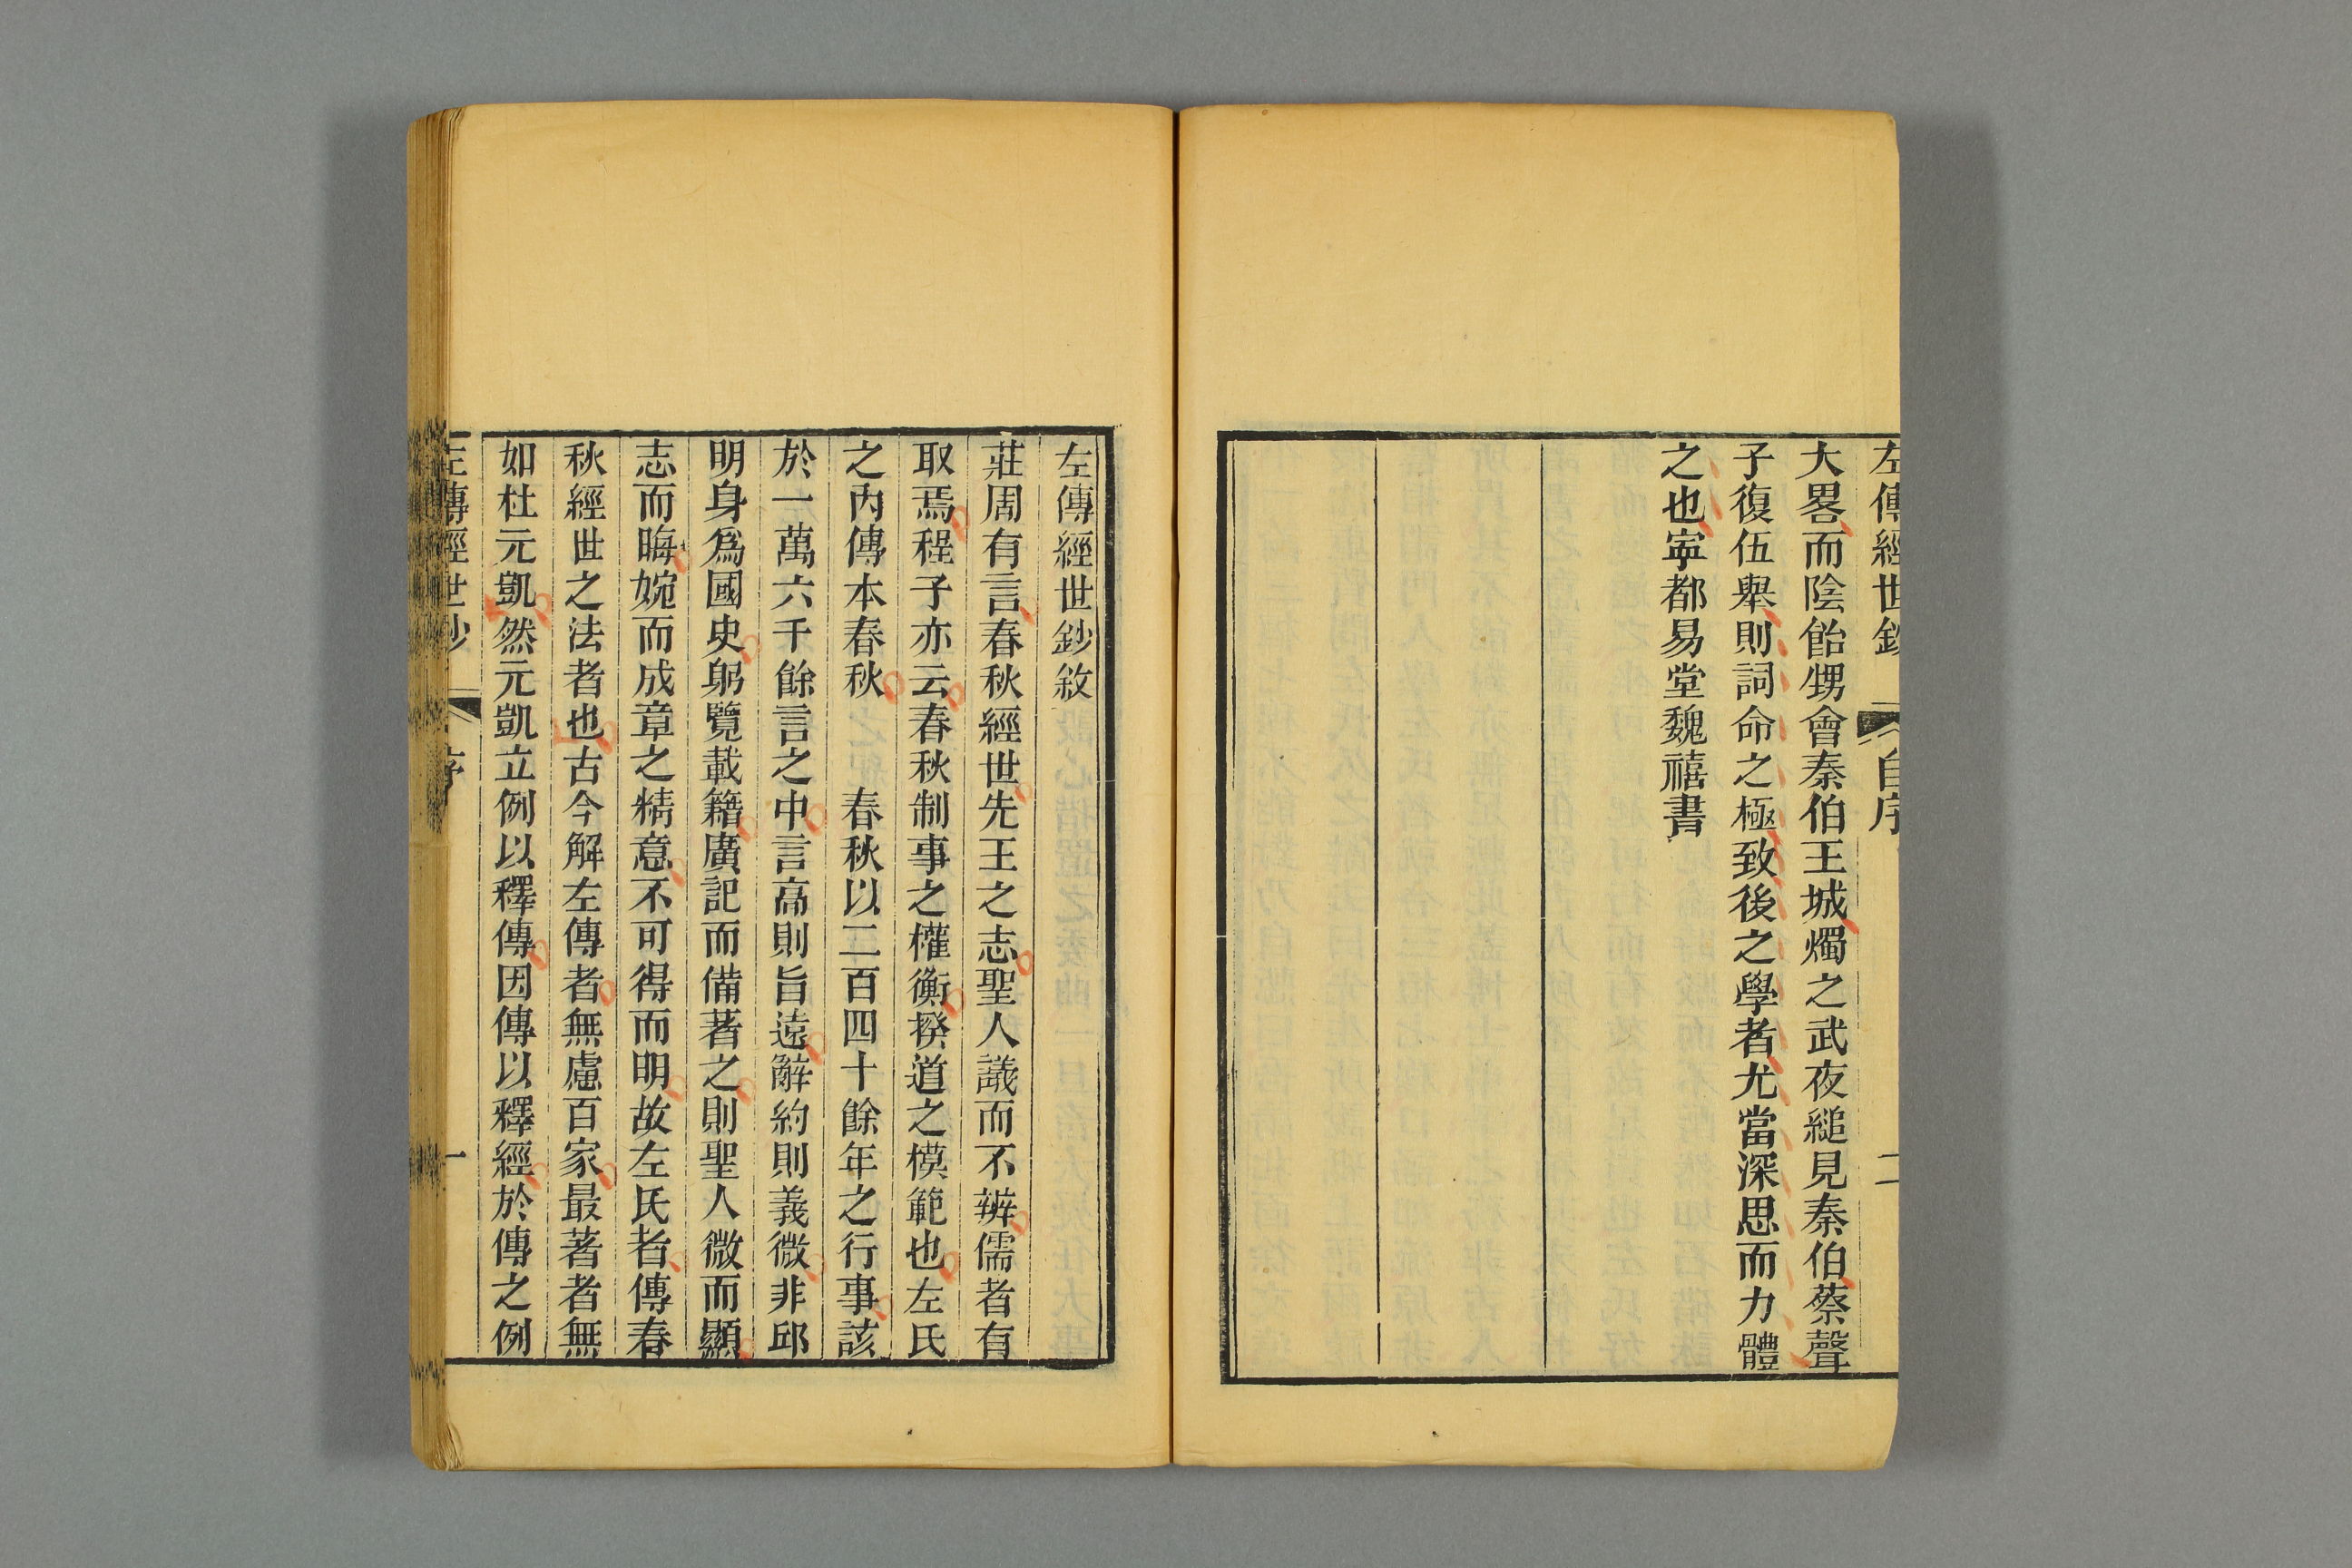 左傳經世鈔 自序 二
大畧而陰飴甥會秦伯王城燭之武夜縋見秦伯蔡聲
子復伍舉則詞命之極致後之學者尤當深思而力體
之也寧都易堂魏禧書
左傳經世鈔敘
莊周有言春秋經世先王之志聖人議而不辨儒者有
取焉程子亦云春秋制事之權衡揆道之模範也左氏
之內傳本春秋 春秋以二百四十餘年之行事該
於一萬六千餘言之中言高則旨遠辭約則義微非邱
明身為國史躬覽載籍廣記而備著之則聖人微而顯
志而晦婉而成章之精意不可得而明故左氏者傳春
秋經世之法者也古今解左傳者無慮百家最著者無
如杜元凱然元凱立例以釋傳因傳以釋經於傳之例
左傳經世鈔 序 一